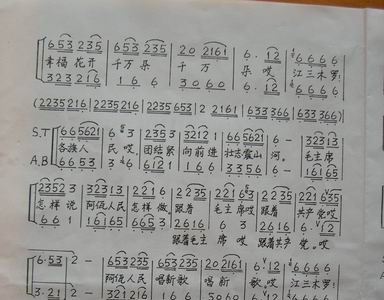 653 235 | 653 235 | 20 2161 | 6. 12 | 6 6 6 6
幸福 花开 千万 朵 千 万 朵 哎 江三木罗
323 216 | 1 6 6 | 3060 | 6. 12 | 6 6 6 6
(2235 216 | 2235 216 | 2235 653 | 2 2161 | 633 366 | 633 366)
S.T 66 5621 | 6 3 | 235 3 | 3212 1 | 66 5621 | 6 - | 323 13
各族人 民 哎 团结紧 向前进 壮志震山 河。 毛主席
A.B 66 53 | 3 6 | 612 1 | 1 6 6 | 3356 | 6 - | 161 65
2352 3 | 323 13 | 221 6 | 2235 | 221 63 | 2235 | 221 635
怎样 说 阿佤人民 怎样 做。跟着 毛主席 哎 跟着 共产 党 哎
66 1 | 161 65 | 66 3 | 2616 | 6 3 | 2616 | 6 12
跟着毛主 席 哎 跟着共产 党。哎
6.53 | 2 - | 323 13 | 653 235 | 653 235 | 20 2161 | 6. 12 | 6 6 6 6
阿佤人民 唱新歌 唱 新 歌。哎 江三木罗
3.21 | 2 - | 321 216